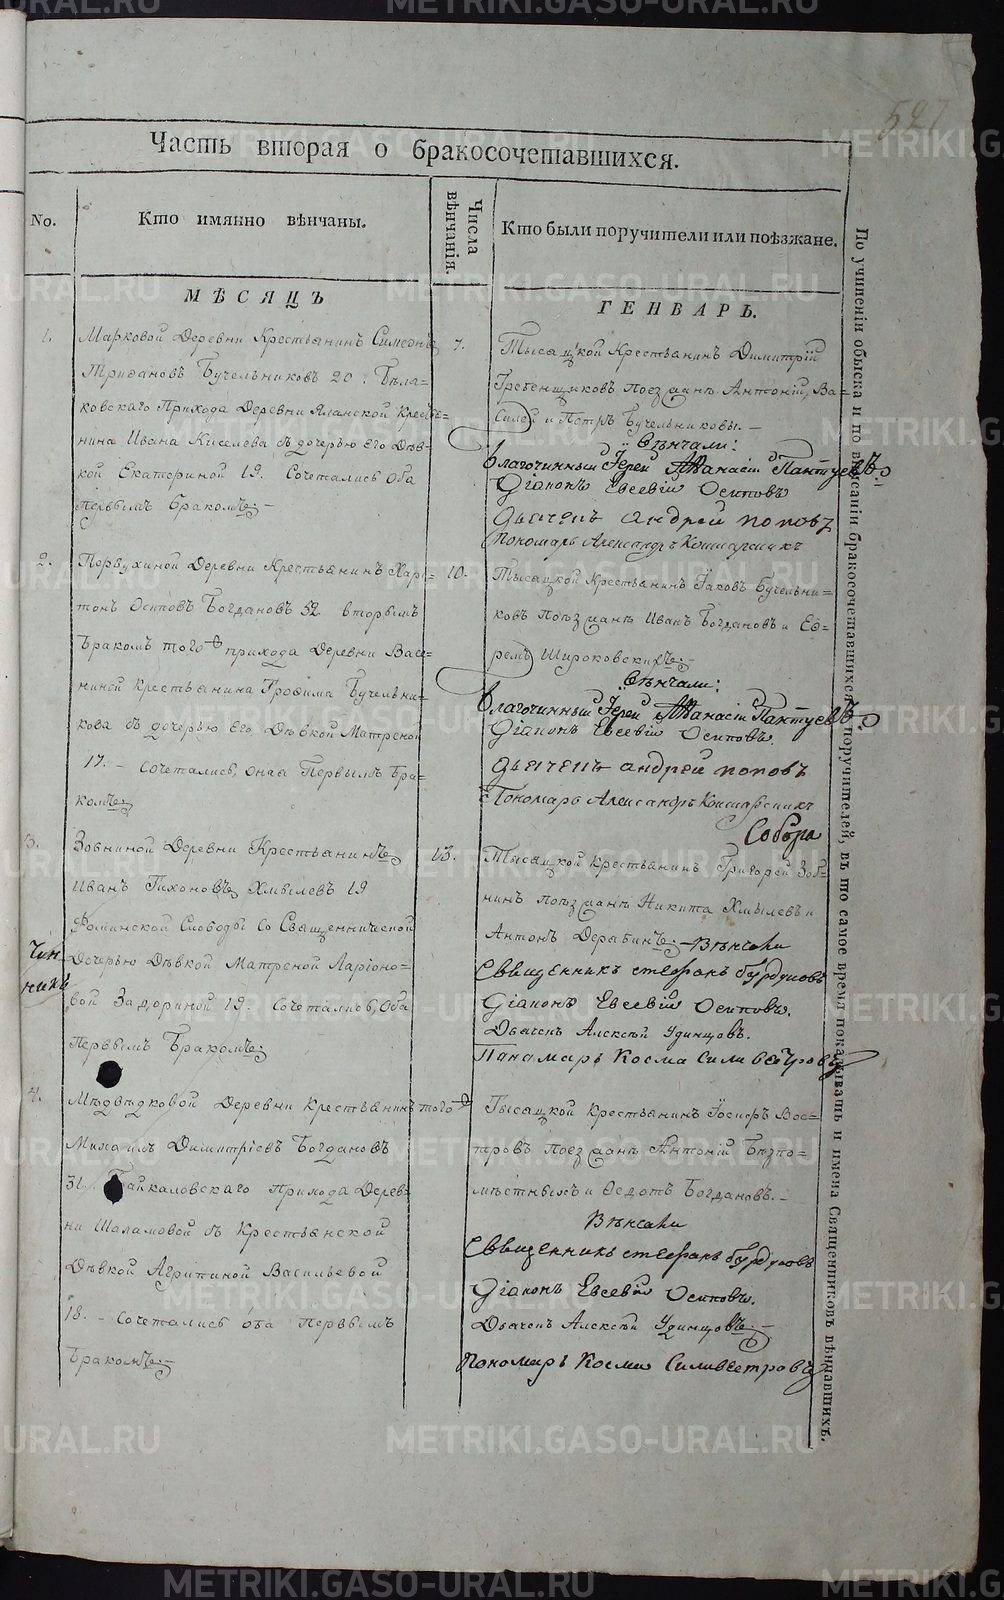 527
Часть вторая о бракосочетавшихся.
No.
Кто имянно вѣнчаны.
Числа вѣнчанія.
Кто были поручители или поѣзжане.
По учиненіи обыска и по взысканіи бракосочетавшихся поручителей, въ то самое время показывать и имена Священниковъ вѣнчавшихъ.
МѢСЯЦЪ
ГЕНВАРЬ.
1.
Марковой Деревни Крестьянинъ Симеонъ
Бучельниковъ 20. Бѣла-
ковскаго Прихода Деревни Яланской Кресть-
нина Ивана Киселева съ дочерью его Дѣв-
кой Екатериной 19. Сочетались Оба
Первымъ Бракомъ
7.
Тысацкой Крестьянинъ Димитрій
Гребенщиковъ поезжанѣ Антоній, Ва-
силей и Петръ Бучельниковы.
Вѣнчали:
благочинный Іерей Афанасій Пантуевъ
Діаконъ Евсевій Осиповъ
дьячекъ андрей поповъ
Пономарь Александръ
2.
Первухиной Деревни Крестьянинъ Хари-
тонъ Осиповъ Богдановъ 52 вторымъ
Бракомъ того прихода Деревни Васе-
ниной Крестьянина Трофима Бучельни-
кова съ дочерью Его Дѣвкой Матреной
17. Сочетались, онаа Первымъ Бра-
комъ
10.
Тысацкой Крестьянинъ Іаковъ Бучельни-
ковъ поѣзжанѣ Иванъ Богдановъ и Еф-
ремъ Широковскихъ
Вѣнчали:
благочинный Іерей Афанасій Пантуевъ
Діаконъ Евсевій Осиповъ.
дьячекъ андрей поповъ
Пономарь Александръ
Собора
3.
Зобниной Деревни Крестьянинъ
Иванъ Тихоновъ Хмылевъ 19
Фоминской Слободы со Священнической
Дочерью Дѣвкой Матреной Ларіоно-
вой Задориной 19. Сочетались, Оба
Первымъ Бракомъ
13.
Тысацкой крестьянинъ Григорей Зоб-
нинъ поѣзжанѣ Никита Хмылевъ и
Антонъ Дерябинъ. Вѣнчали
Священникъ стефанъ бурдуковъ
Діаконъ Евсевій Осиповъ.
Дьячекъ Алексѣй Удинцовъ.
Панамарь Косма Силивестровъ
4.
Мѣдвѣдковой Деревни Крестьянинъ
Михаилъ Димитріевъ Богдановъ
31. Байкаловскаго Прихода Дерев-
ни Шаламовой съ Крестьянской
Дѣвкой Агрипиной Васильевой
18. Сочетались оба Первымъ
Бракомъ
того
Тысацкой Крестьянинъ Іосифъ Вос-
тровъ поезжанѣ Антоній Безпо-
мѣстныхъ и Федотъ Богдановъ.
Вѣнчали
Священникъ стефанъ бурдуковъ
Діаконъ Евсевій Осиповъ.
Дьячекъ Алексѣй Удинцовъ
Пономарь Косма Силивестровъ
METRIKI.GASO-URAL.RU